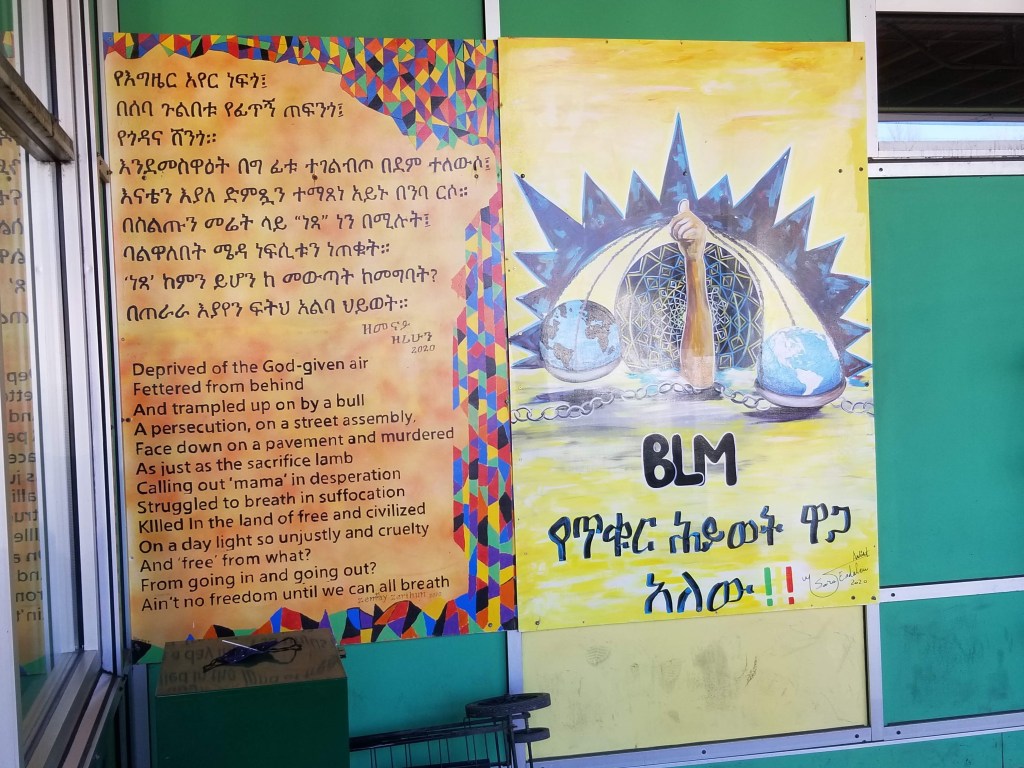 የእግዜር አየር ነፍጎ፤
በሰባ ጉልበቱ የፊጥኝ ጠፍንጎ፤
የጎዳና ሸንጎ።
እንደመስዋዕት በግ ፊቱ ተገልብጦ በደም ተለውሶ፤
እናቴን እያለ ድምጿን ተማጸነ አይኑ በንባ ርሶ።
በስልጡን መሬት ላይ “ነጻ” ነን በሚሉት፤
ባልዋለበት ሜዳ ነፍሲቱን ነጠቁት።
‘ነጻ’ ከምን ይሆን ከ መውጣት ከመግባት?
በጠራራ እያየን ፍትህ አልባ ህይወት።
ዘመናይ
ዘሪሁን
2020
Deprived of the God-given air
Fettered from behind
And trampled up on by a bull
A persecution, on a street assembly,
Face down on a pavement and murdered
As just as the sacrifice lamb
Calling out ‘mama’ in desperation
Struggled to breath in suffocation
KIlled In the land of free and civilized
On a day light so unjustly and cruelty
And ‘free’ from what?
From going in and going out?
Ain’t no freedom until we can all breath
2020
BLM
የጥቁር ሕይወት ዋጋ
አለው!!
by
2020